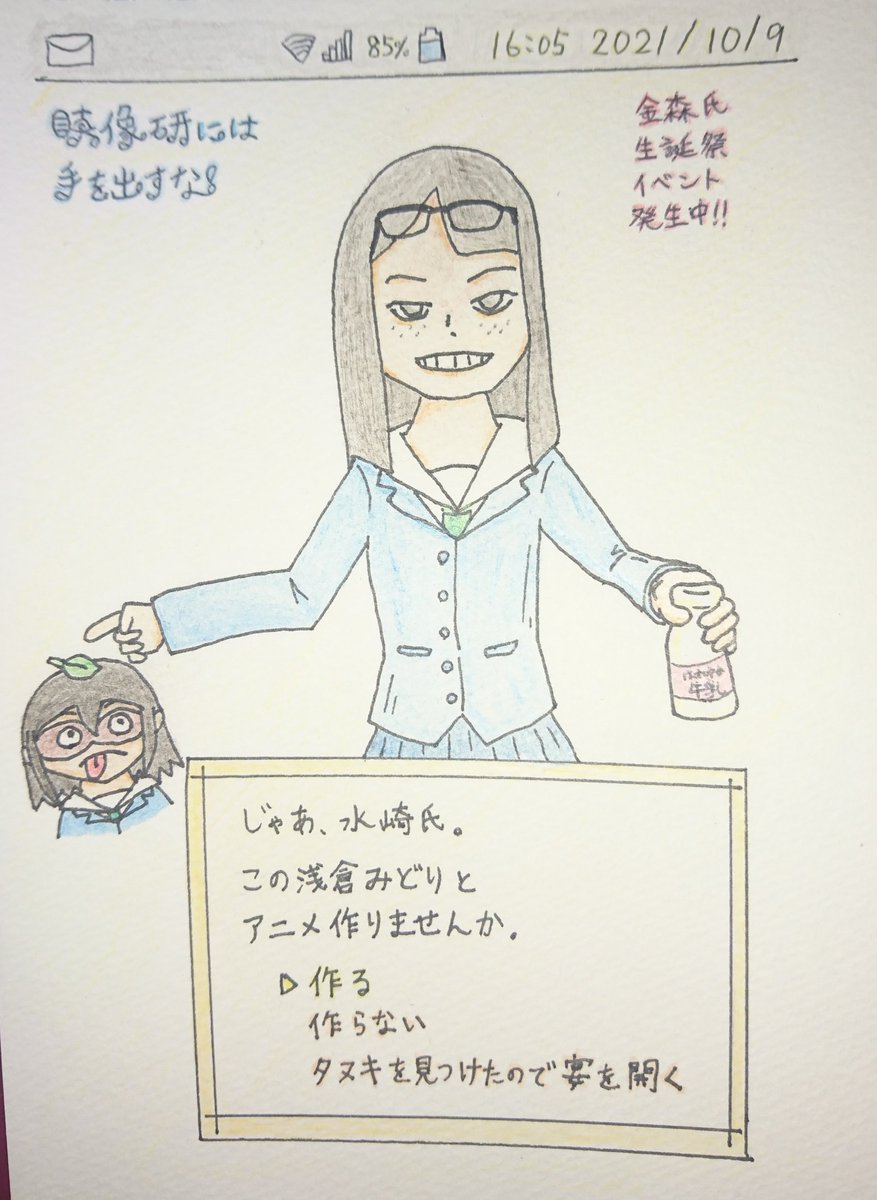 85% 16:05 2021/10/9
映像研には
手を出すな!
金森氏
生誕祭
イベント
発生中!!
牛乳
じゃあ、水崎氏。
この浅倉みどりと
アニメ作りませんか。
▷作る
作らない
タヌキを見つけたので宴を開く